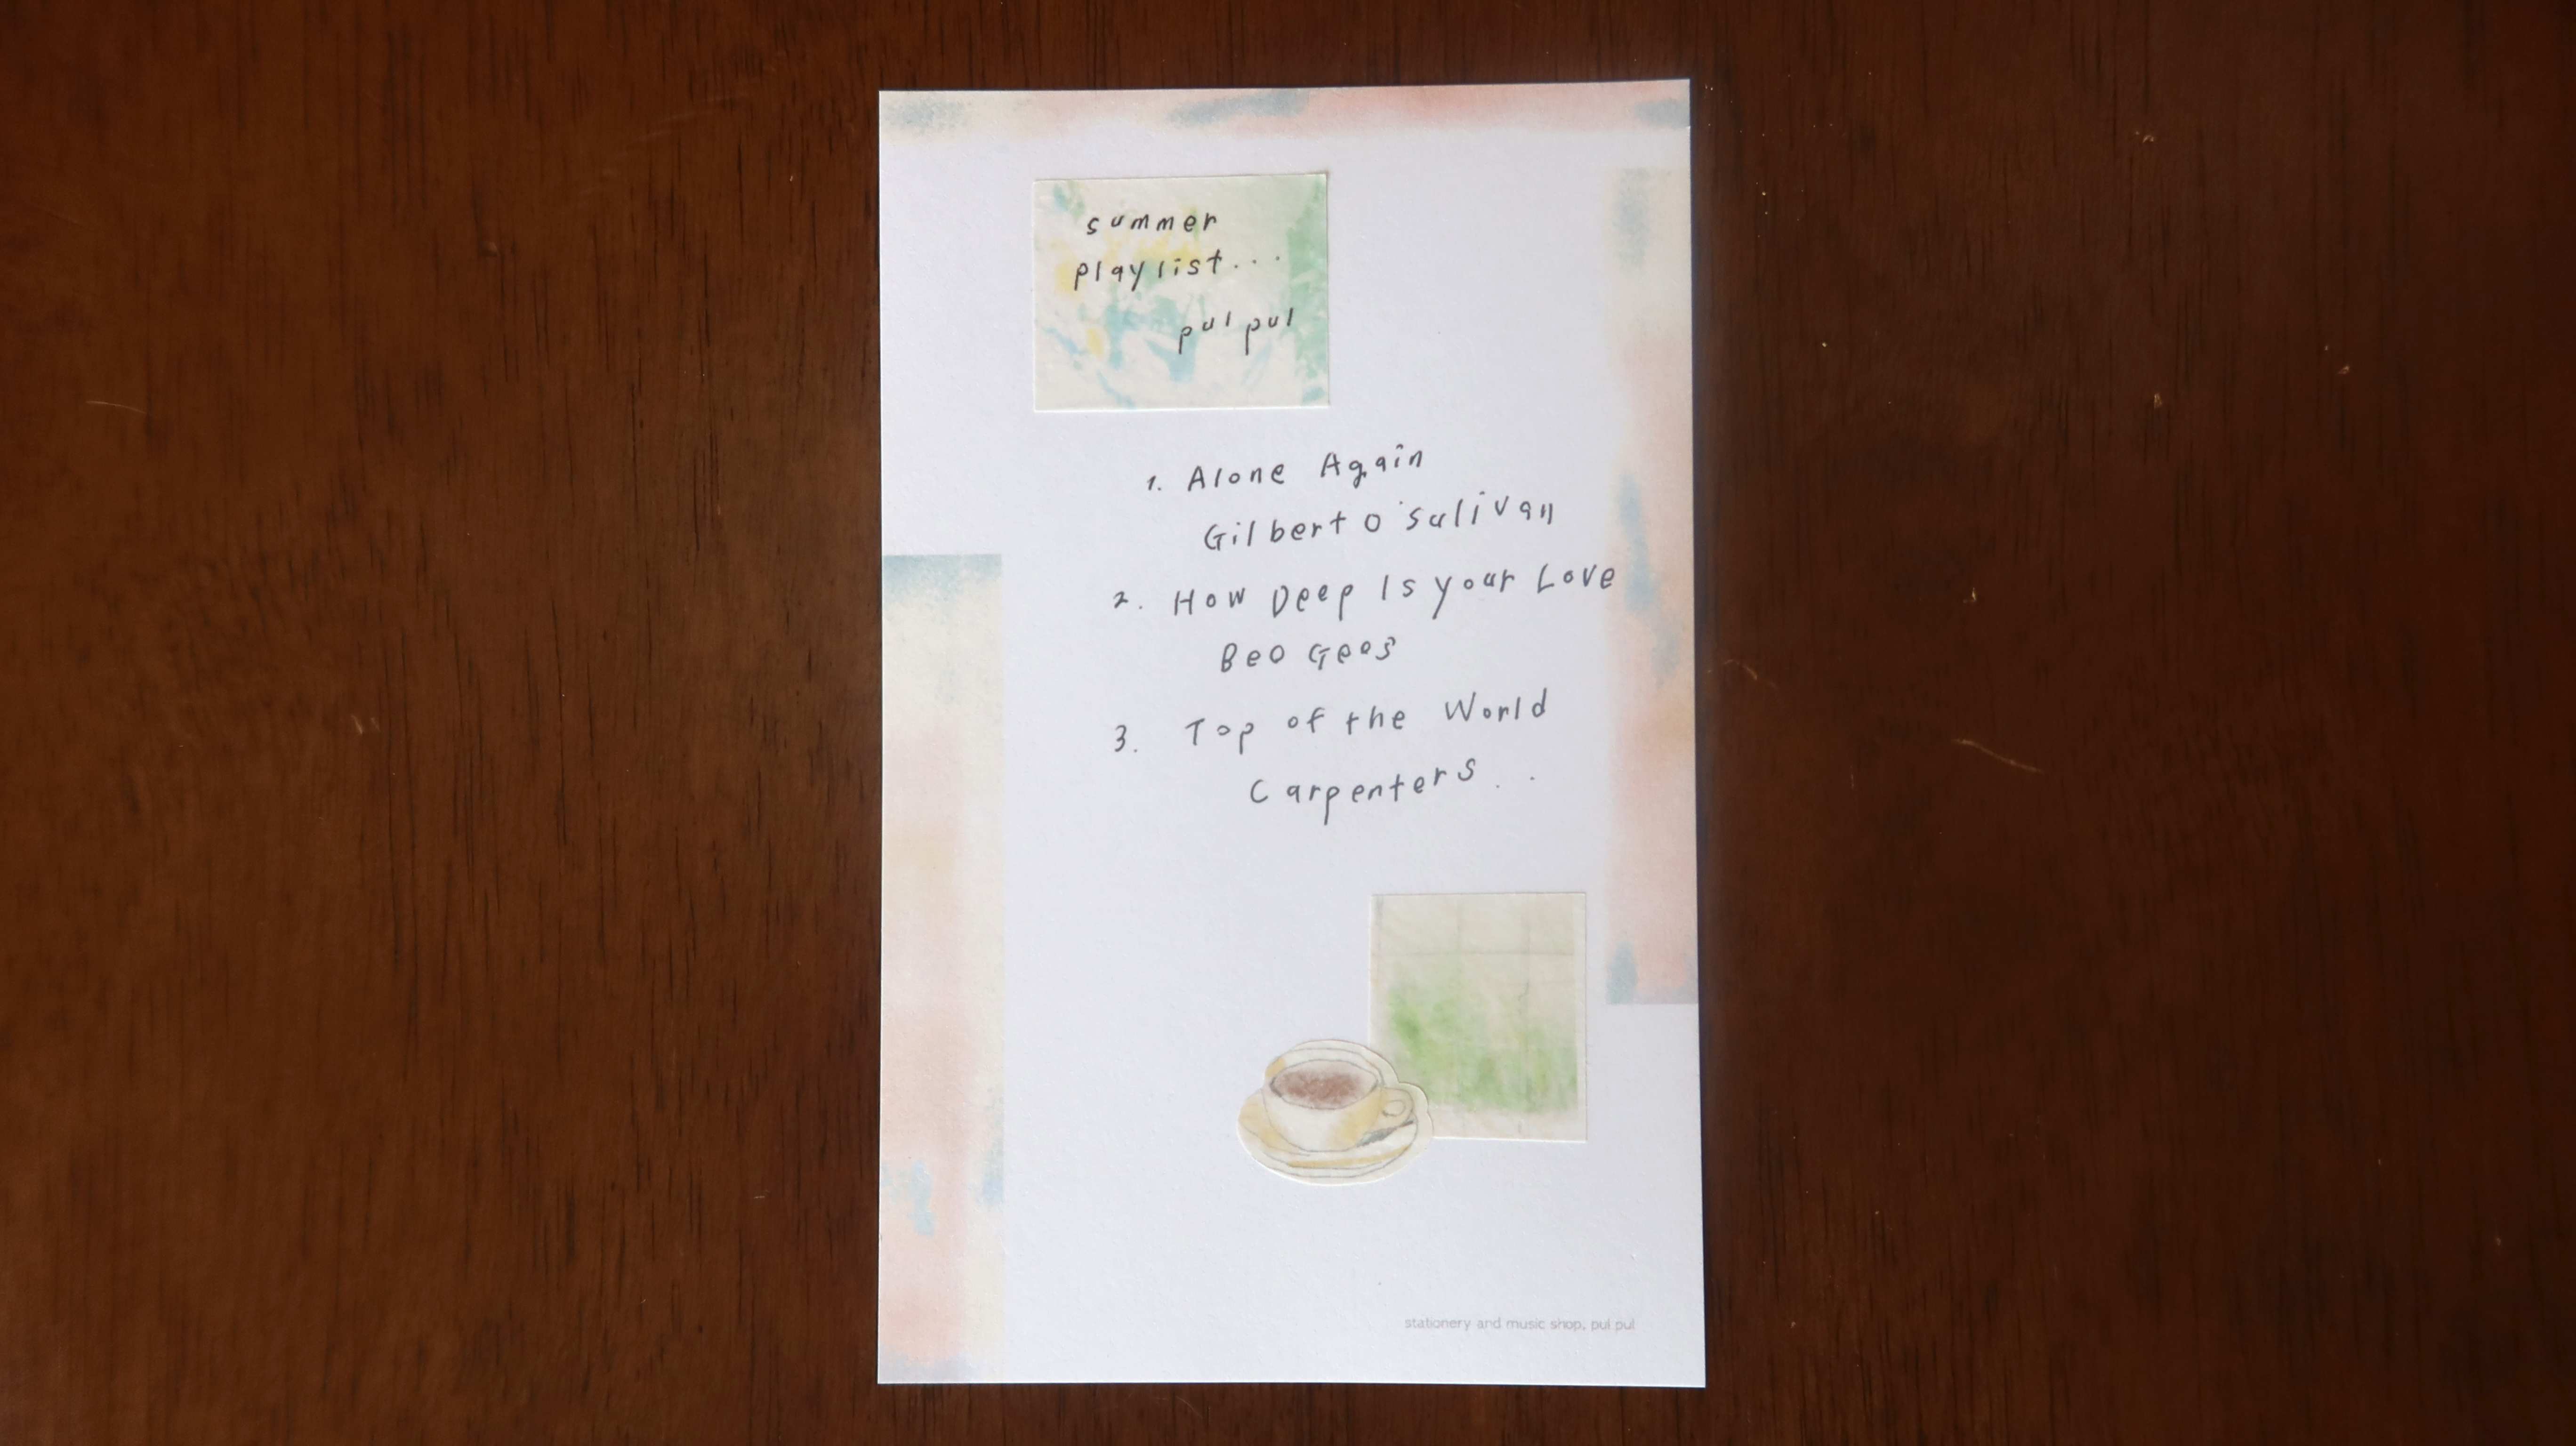 summer
playlist...
pul pul
1. Alone Again
Gilbert O'sulivan
2. How Deep Is your Love
Bee Gees
3. Top of the World
Carpenters..
stationery and music shop, pul pul